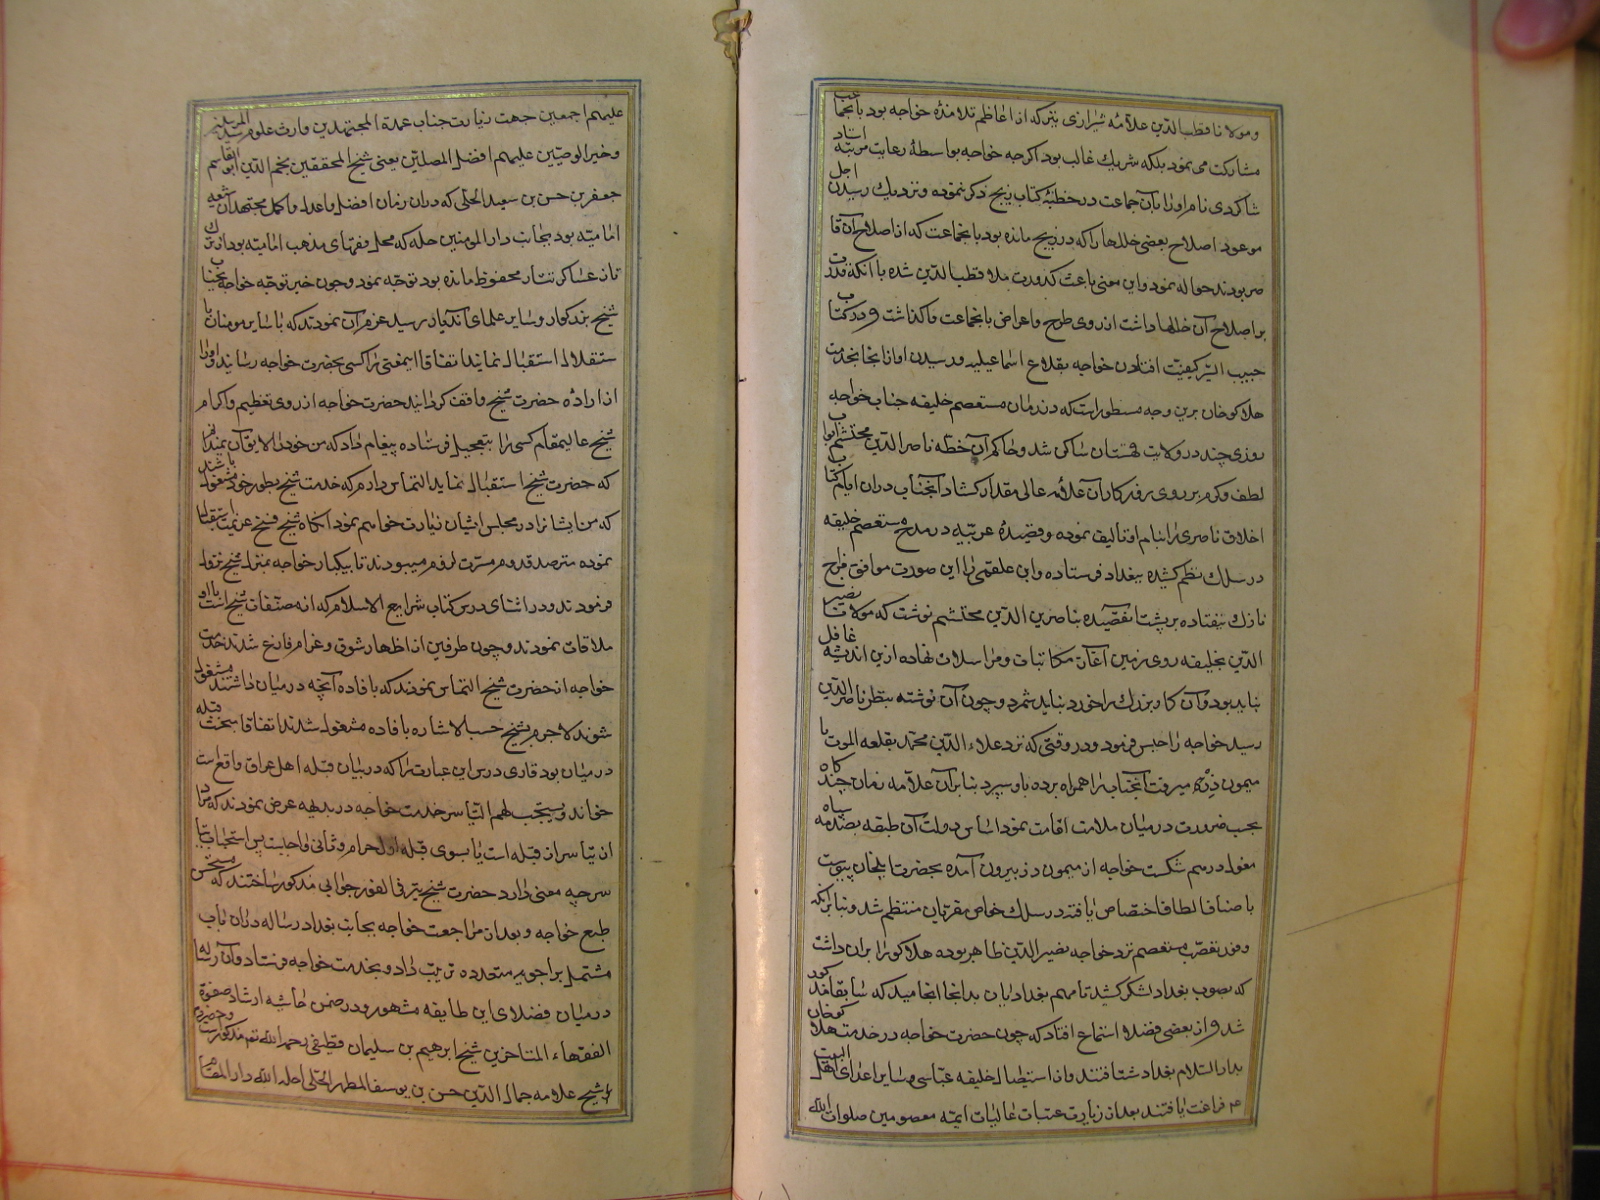 ومولانا قطب الدین علامه شیرازی نیز که از اعاظم تلامذه خواجه بود با نجماعت
مشارکت می نمود بلکه شریک غالب بود اکرچه خواجه بواسطه رعایت مرتبه استاد
شاکردی نام او را با آن جماعت در خطبه کتاب زیج ذکر ننموده و نزدیک رسیدن اجل
موعود اصلاح بعضی خللها را که در زیج مانده بود با نجماعت که از اصلاح آن قا
صر بودند حواله نمود و این معنی باعث کدورت ملا قطب الدین شده با آنکه قدرت
بر اصلاح آن خللها داشت از روی طرح و اعراض با نجماعت واکذاشت و در کتاب
حبیب السیر کیفیت افتادن خواجه بقلاع اسماعیلیه و رسیدن او از انجا بخدمت
هلاکو خان برین وجه مسطور است که در زمان مستعصم خلیفه جناب خواجه
روزی چند در ولایت قهستان ساکن شد و حاکم آن خطه ناصر الدین محتشم ابواب
لطف و کرم بر روی روزکار آن علامه عالی مقدار کشاد آنجناب در ان ایام کتاب
اخلاق ناصری را بنام او تالیف نموده و قصیده عربیه در مدح مستعصم خلیفه
در سلک نظم کشیده ببغداد فرستاده و ابن علقمی را این صورت موافق مزاج
نازک نیفتاده بر پشت آن قصیده بناصر الدین محتشم نوشت که مولانا نصیر
الدین بخلیفه روی زمین آغاز مکاتبات و مراسلات نهاده ازین اندیشه غافل
نباید بود و آن کاو بزرک را خورد نباید شمرد و چون آن نوشته بنظر ناصر الدین
رسید خواجه را حبس فرمود و در وقتی که نزد علاء الدین محمد بقلعه الموت یا
میمون دژ میرفت آنجناب را همراه برده باو سپرد بنابر آن علامه زمان چند کاه
بحسب ضرورت در میان ملاحده اقامت نمود اساس دولت آن طبقه بصدمه سپاه
مغول درهم شکست خواجه از میمون دز بیرون آمده بحضرت ایلخان پیوست
باصناف الطاف اختصاص یافته در سلک خواص مقربان منتظم شد و بنا برانکه
وفور تعصب مستعصم نزد خواجه نصیر الدین ظاهر بوده هلاکو را بران داشت
که بصوب بغداد لشکر کشید تا مهم بغدادیان بدانجا انجامید که سابقا مذکور
شد و از بعضی فضلا استماع افتاد که چون حضرت خواجه در خدمت هلاکو خان
بدار السلام بغداد شتافتند و از استیصال خلیفه عباسی و سایر اعدای اهل البیت
عم فراغت یافتند بعد از زیارت عتبات عالیات ائمه معصومین صلوات الله
علیهم اجمعین جهت زیارت جناب عمدة المجتهدین وارث علوم سید المرسلین
وخیر الوصیین علیهم افضل المصلین یعنی شیخ المحققین نجم الدین ابو القاسم
جعفر بن حسن بن سعید الحلی که در ان زمان افضل و اعدل و اکمل مجتهدان شیعه
امامیه بود بجانب دار المومنین حله که محل فقهای مذهب امامیه بود
تاز عساکر تتار محفوظ مانده بود توجه نمود و چون خبر توجه خواجه بجناب
شیخ بزرکوار و سایر علمای آندیار رسید عزم آن نمودند که با سایر مومنان با
ستقلال استقبال نمایند اتفاقا اینمعنی را کسی بحضرت خواجه رسانید و او را
از اراده حضرت شیخ واقف کردانید حضرت خواجه از روی تعظیم و اکرام
شیخ عالیمقام کسی را بتعجیل فرستاده پیغام داد که من خود را لایق آن نمیدانم
که حضرت شیخ استقبال نماید التماس دارم که خدمت شیخ بطور خود مشغول باشند
که من ایشانرا در مجلس ایشان زیارت خواهم نمود انکاه شیخ فسخ عزیمت استقبال
نموده مترصد قدوم مسرت لزوم میبودند تا بیکبار خواجه بمنزل شیخ نزول
فرمودند و در اثنای درس کتاب شرایع الاسلام که از مصنفات شیخ است با او
ملاقات نمودند و چون طرفین از اظهار شوق و غرام فارغ شدند خدمت
خواجه از حضرت شیخ التماس نمودند که بافاده آنچه در میان داشتند مشغول
شوند لاجرم شیخ حسب الاشاره بافاده مشغول شدند اتفاقا بحث قبله
در میان بود قاری درس این عبارت را که در بیان قبله اهل عراق واقع است
خواند و یستحب لهم التیاسر خدمت خواجه در بدیهه عرض نمودند که مراد
از تیاسر از قبله است یا بسوی قبله اول حرام و ثانی واجبست پس استحباب تیا
سر چه معنی دارد حضرت شیخ نیز فی الفور جوابی مذکور ساختند که مستحسن
طبع خواجه و بعد از مراجعت خواجه بجانب بغداد رساله در ان باب
مشتمل بر اجوبه متعدده ترتیب داد و بخدمت خواجه فرستاد و آن رساله
درمیان فضلای این طایفه مشهور و در ضمن حاشیه ارشاد صفوة
الفقهاء المتاخرین شیخ ابرهیم بن سلیمان قطیفی رحمه الله تم مذکور است
شیخ علامه جمال الدین حسن بن یوسف المطهر الحلی احله الله دار المقام